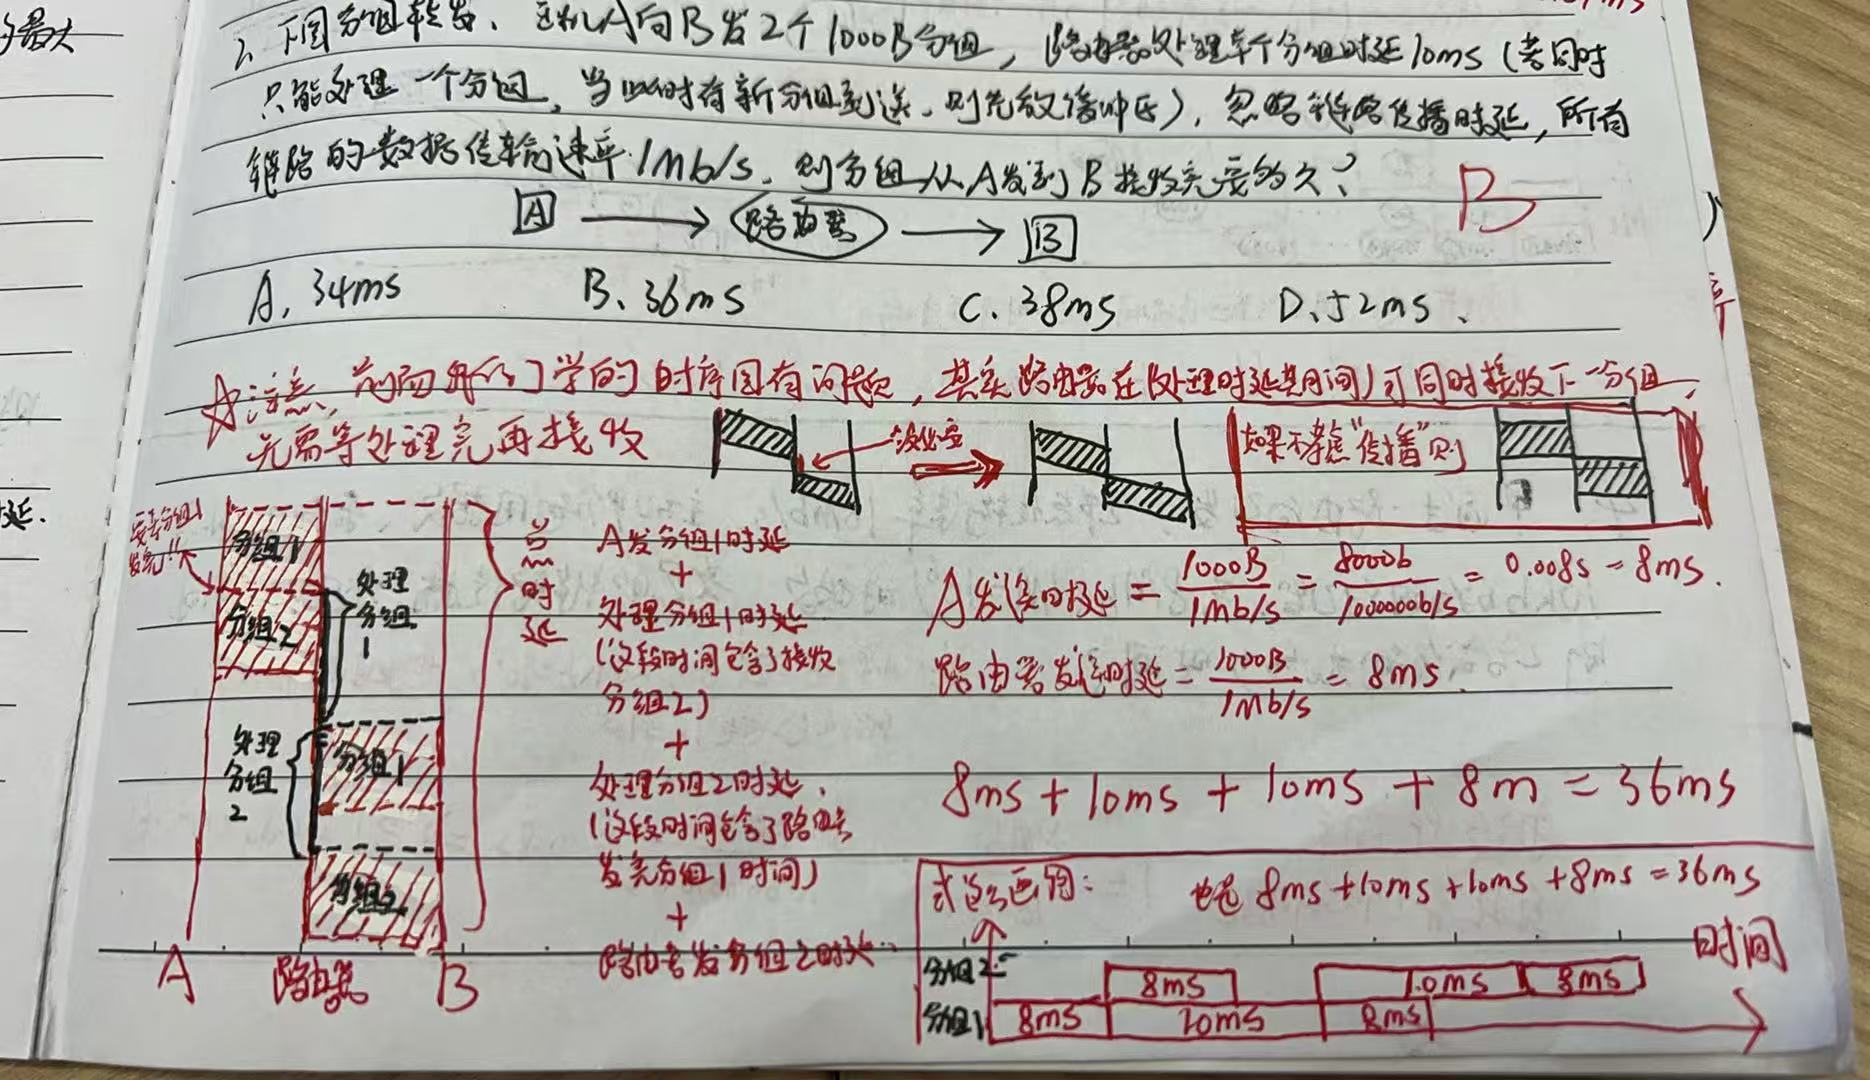 的最大
2、下图分组转发、主机A向B发2个1000B分组，路由器处理单个分组时延10ms（若同时
只能处理一个分组，当此时有新分组到达，则先放缓冲区），忽略链路传播时延，所有
链路的数据传输速率1Mb/s，则分组从A发到B接收完要多久？
B
A
路由器
B
A、34ms
B、36ms
C、38ms
D、52ms、
☆注意，前面我们学的时序图有问题，其实路由器在(处理时延期间)可同时接收下一分组，
无需等处理完再接收
没必要
如果不考虑"传播"则
延.
要等分组1
发完!!
分组1
分组2
处理
分组
1
处理
分组
2
分组1
分组2
A
路由器
B
总时延
A发分组1时延
+
处理分组1时延
(这段时间包含了接收
分组2)
+
处理分组2时延、
(这段时间包含了路由器
发完分组1时间)
+
路由器发分组2时延
A发送时延 = 1000B/1Mb/s = 8000b/1000000b/s = 0.008s = 8ms.
路由器发送时延 = 1000B/1Mb/s = 8ms.
8ms + 10ms + 10ms + 8m = 36ms
或这么画图：
也是 8ms+10ms+10ms+8ms=36ms
时间
分组2
8ms
10ms
8ms
分组1
8ms
10ms
8ms